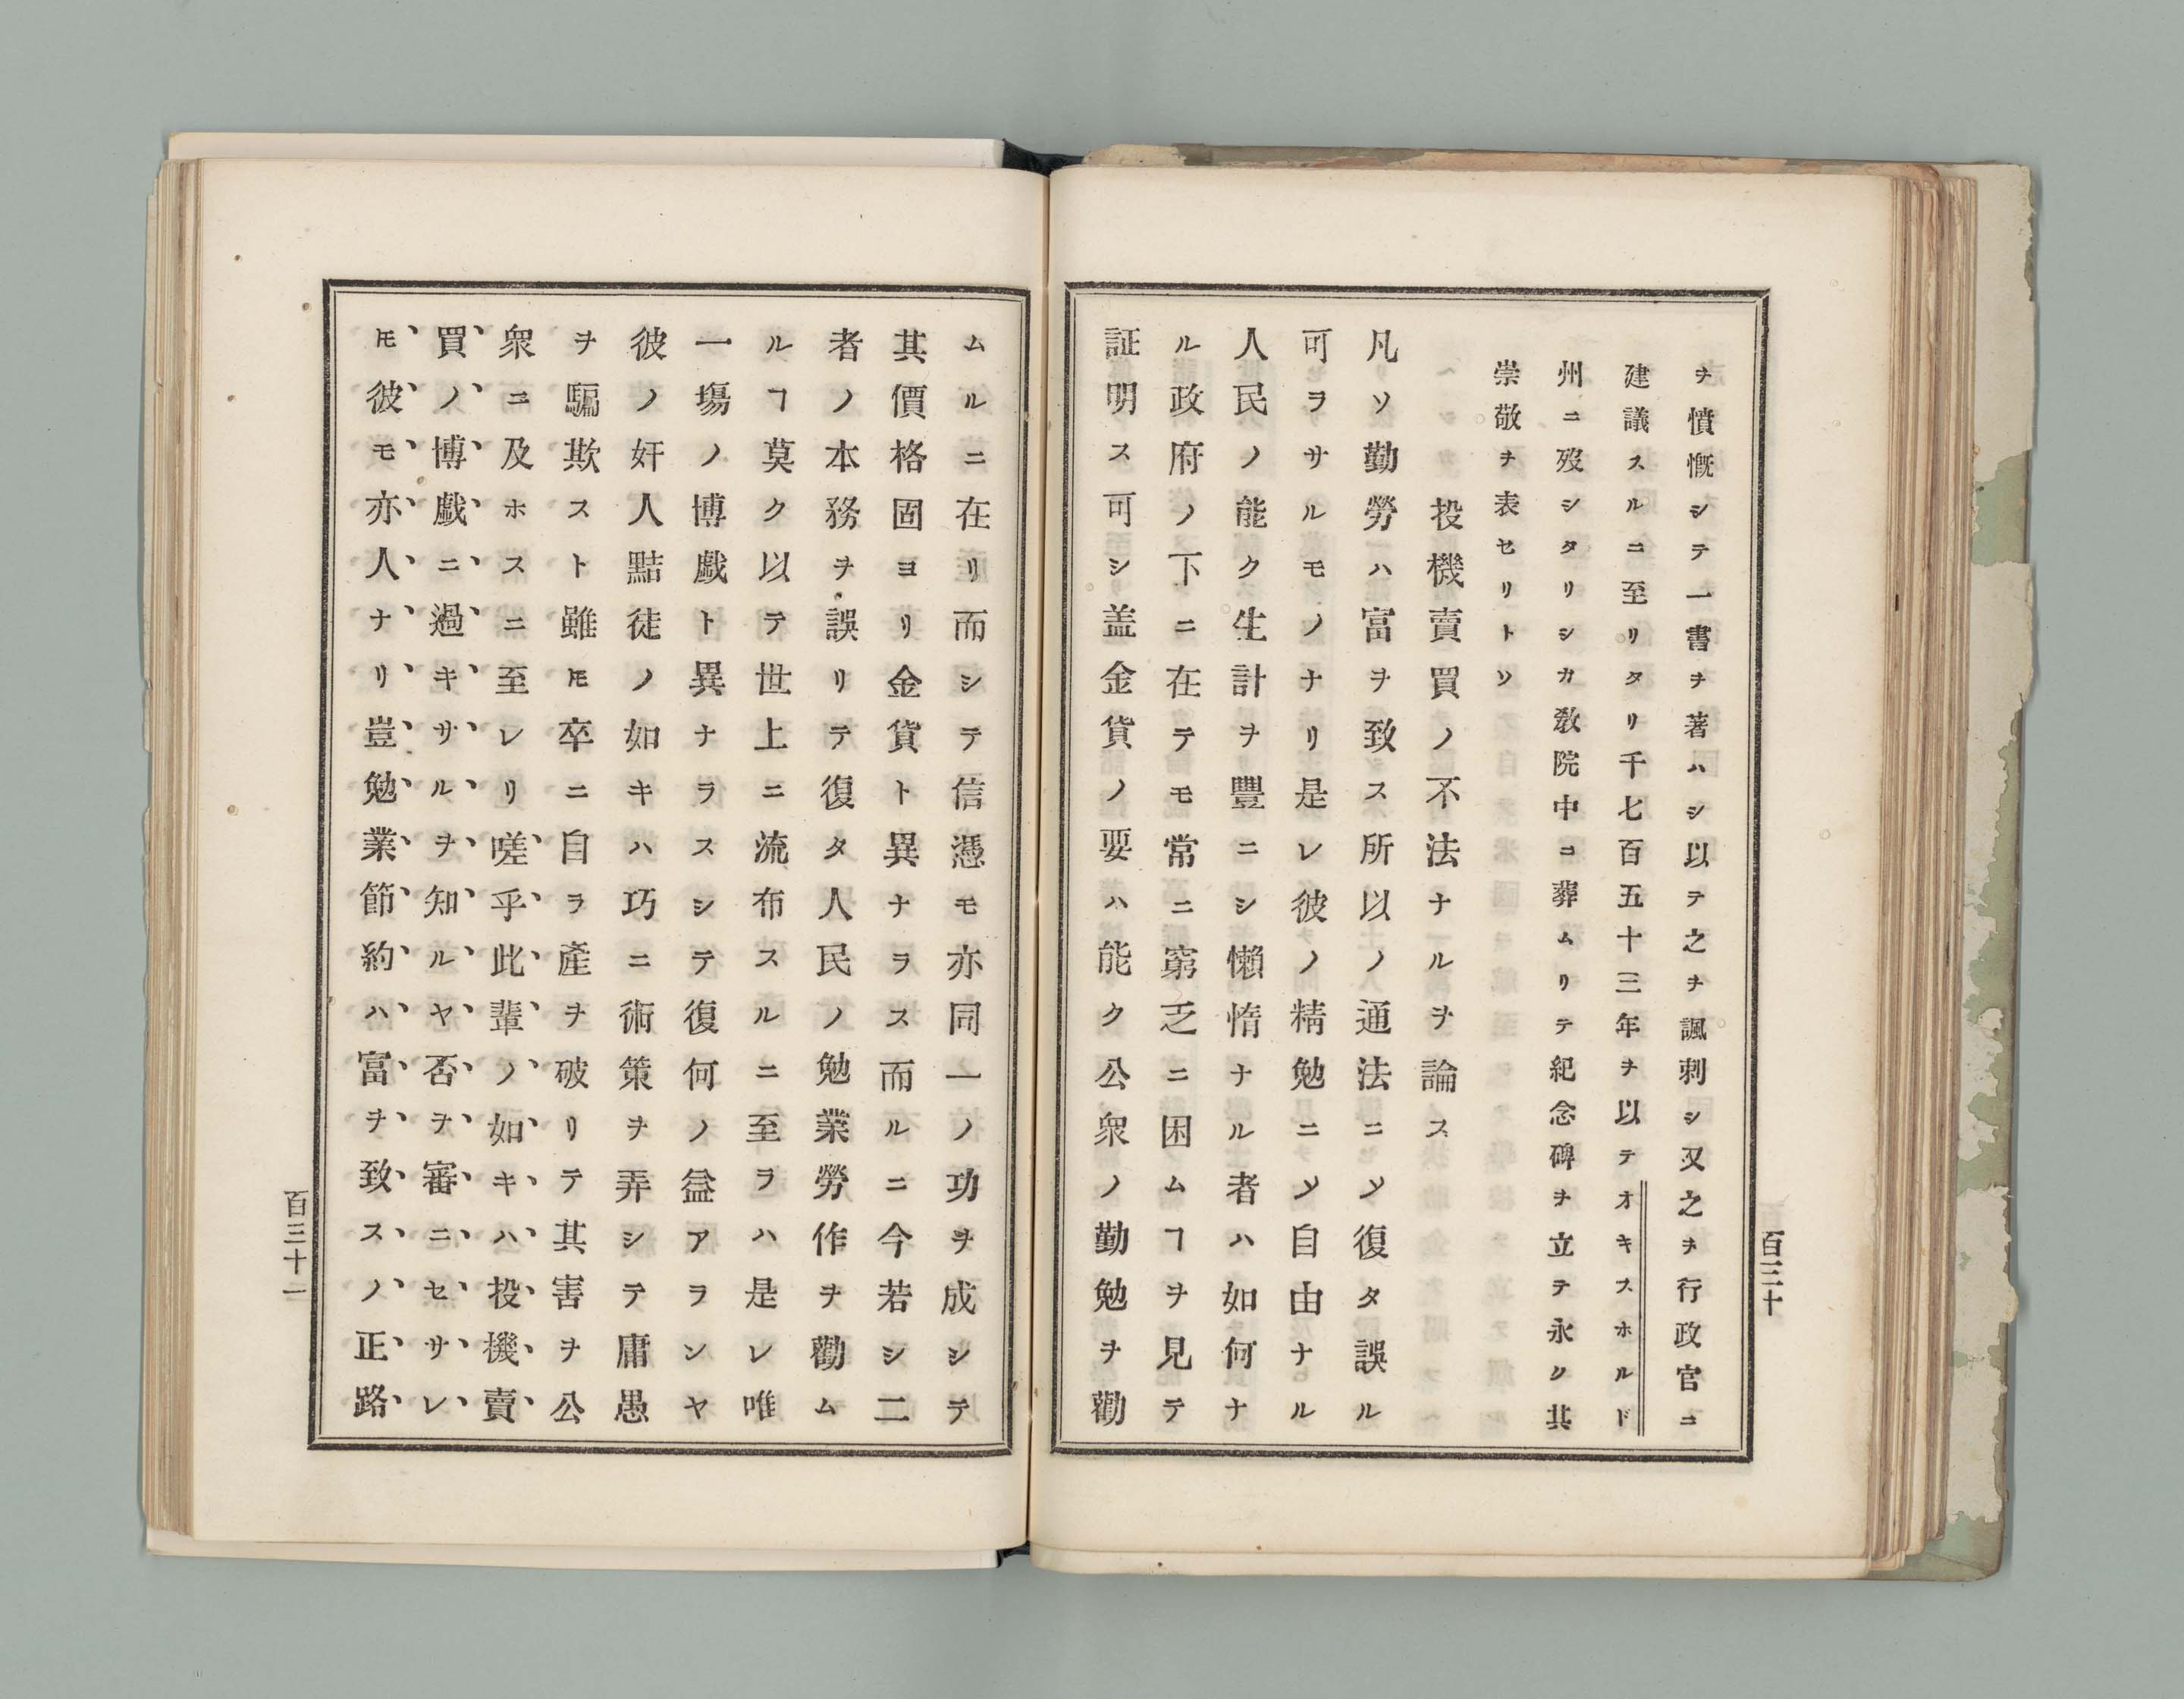 ヲ憤慨シテ一書ヲ著ハシ以テ之ヲ諷刺シ又之ヲ行政官ニ
建議スルニ至リタリ千七百五十三年ヲ以テオキスホルド
州ニ歿シタリシカ敎院中ニ葬ムリテ紀念碑ヲ立テ永ク其
崇敬ヲ表セリトソ
投機賣買ノ不法ナルヲ論ス
凡ソ勤勞ハ富ヲ致ス所以ノ通法ニ〆復タ誤ル
可ヲサルモノナリ是レ彼ノ精勉ニ〆自由ナル
人民ノ能ク生計ヲ豐ニシ懶惰ナル者ハ如何ナ
ル政府ノ下ニ在テモ常ニ窮乏ニ困ムヿヲ見テ
証明ス可シ盖金貨ノ要ハ能ク公衆ノ勤勉ヲ勸
百三十
ムルニ在リ而シテ信憑モ亦同一ノ功ヲ成シテ
其價格固ヨリ金貨ト異ナラス而ルニ今若シ二
者ノ本務ヲ誤リテ復タ人民ノ勉業勞作ヲ勸ム
ルヿ莫ク以テ世上ニ流布スルニ至ラハ是レ唯
一塲ノ博戲ト異ナラスシテ復何ノ益アヲンヤ
彼ノ奸人黠徒ノ如キハ巧ニ術策ヲ弄シテ庸愚
ヲ騙欺スト雖𪜈卒ニ自ラ產ヲ破リテ其害ヲ公
衆ニ及ホスニ至レリ嗟乎此輩ノ如キハ投機賣
買ノ博戲ニ過キサルヲ知ルヤ否ヲ審ニセサレ
𪜈彼モ亦人ナリ豈勉業節約ハ富ヲ致スノ正路
百三十一